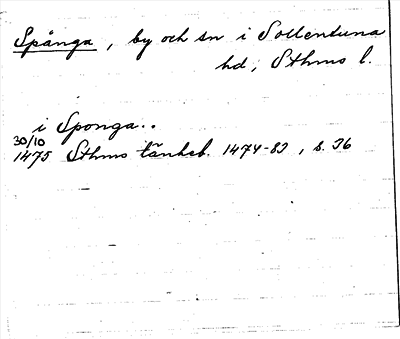 Spånga, by och sn i Sollentuna
hd, Sthms l.
i Sponga..
30/10
1475 Sthms tänkeb. 1474-83, s. 36